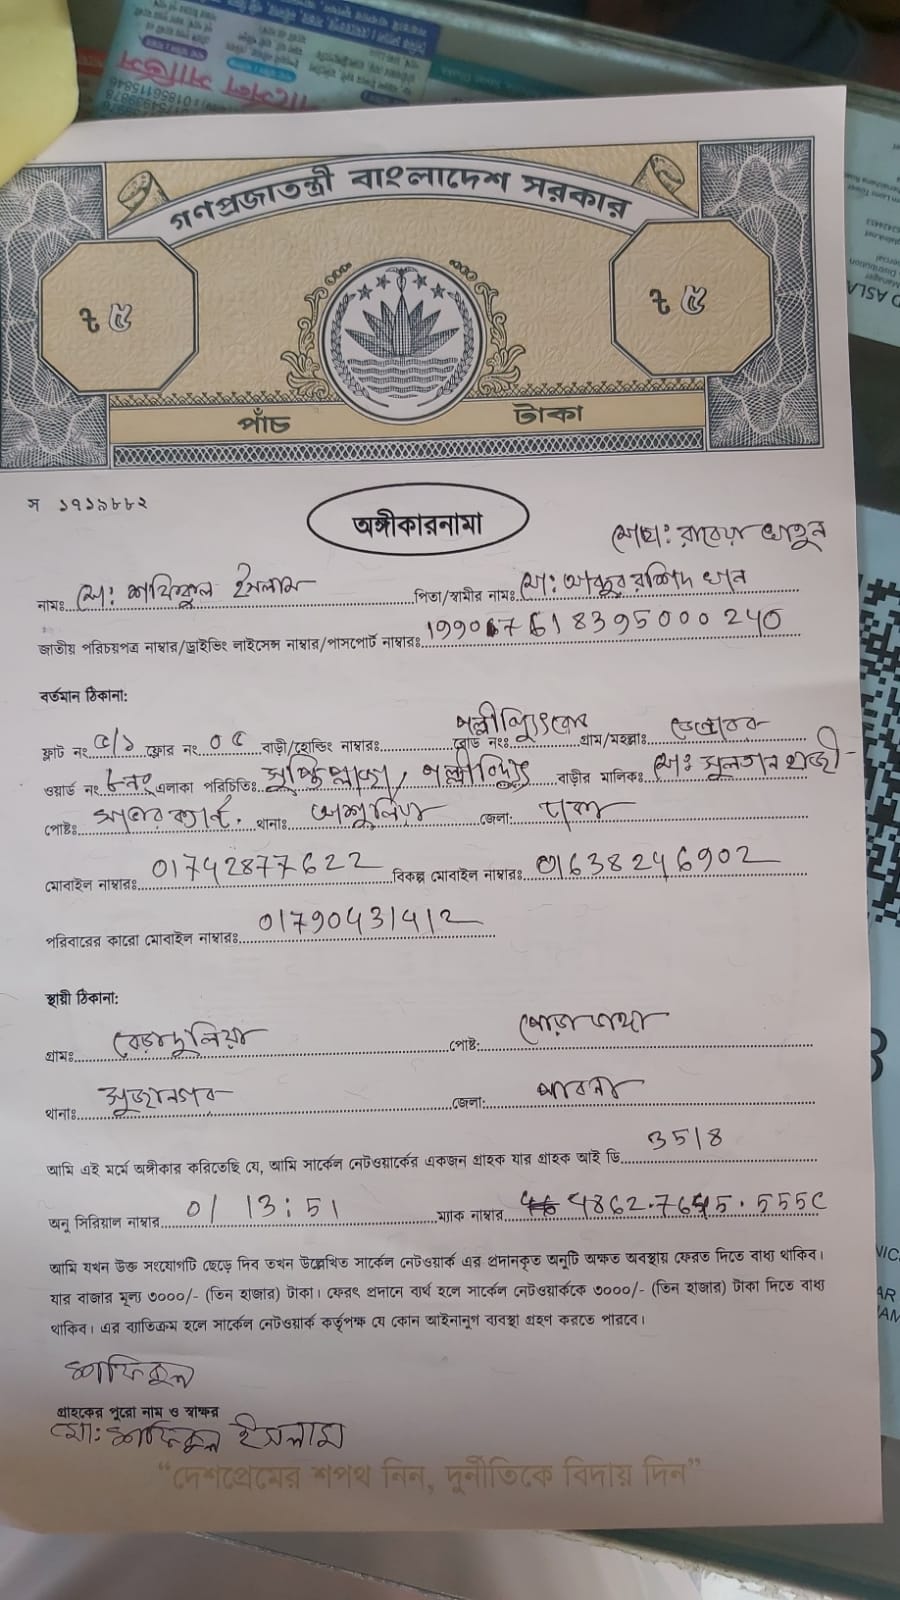 গণপ্রজাতন্ত্রী বাংলাদেশ সরকার
ট ৫ ট ৫
পাঁচ টাকা
স ১৭১৯৮৮২
অঙ্গীকারনামা
মোছা: রাবেয়া খাতুন
নামঃ মো: শফিকুল ইসলাম পিতা/স্বামীর নামঃ মো: আব্দুর রশিদ খান
জাতীয় পরিচয়পত্র নাম্বার/ড্রাইভিং লাইসেন্স নাম্বার/পাসপোর্ট নাম্বারঃ
বর্তমান ঠিকানা:
পল্লীবিদ্যুৎ
ফ্লাট নং ৫/১ ফ্লোর নং ০৫ বাড়ী/হোল্ডিং নাম্বারঃ রোড নংঃ গ্রাম/মহল্লাঃ ডেন্ডাবর
ওয়ার্ড নং ৮নং এলাকা পরিচিতিঃ পল্লীবিদ্যুৎ বাড়ীর মালিকঃ মো: সুলতান হাজী
পোষ্টঃ থানাঃ আশুলিয়া জেলা: ঢাকা
মোবাইল নাম্বারঃ 01742877622 বিকল্প মোবাইল নাম্বারঃ 01638246902
পরিবারের কারো মোবাইল নাম্বারঃ 01790431412
স্থায়ী ঠিকানা:
গ্রামঃ পোষ্ট: পোড়াডাঙ্গা
থানাঃ সুজানগর জেলা: পাবনা
আমি এই মর্মে অঙ্গীকার করিতেছি যে, আমি সার্কেল নেটওয়ার্কের একজন গ্রাহক যার গ্রাহক আই ডি 3518
অনু সিরিয়াল নাম্বার 01 13:51 ম্যাক নাম্বার
আমি যখন উক্ত সংযোগটি ছেড়ে দিব তখন উল্লেখিত সার্কেল নেটওয়ার্ক এর প্রদানকৃত অনুটি অক্ষত অবস্থায় ফেরত দিতে বাধ্য থাকিব।
যার বাজার মূল্য ৩০০০/- (তিন হাজার) টাকা। ফেরৎ প্রদানে ব্যর্থ হলে সার্কেল নেটওয়ার্ককে ৩০০০/- (তিন হাজার) টাকা দিতে বাধ্য
থাকিব। এর ব্যতিক্রম হলে সার্কেল নেটওয়ার্ক কর্তৃপক্ষ যে কোন আইনানুগ ব্যবস্থা গ্রহণ করতে পারবে।
শফিকুল
গ্রাহকের পুরো নাম ও স্বাক্ষর
মো: শফিকুল ইসলাম
“দেশপ্রেমের শপথ নিন, দুর্নীতিকে বিদায় দিন”